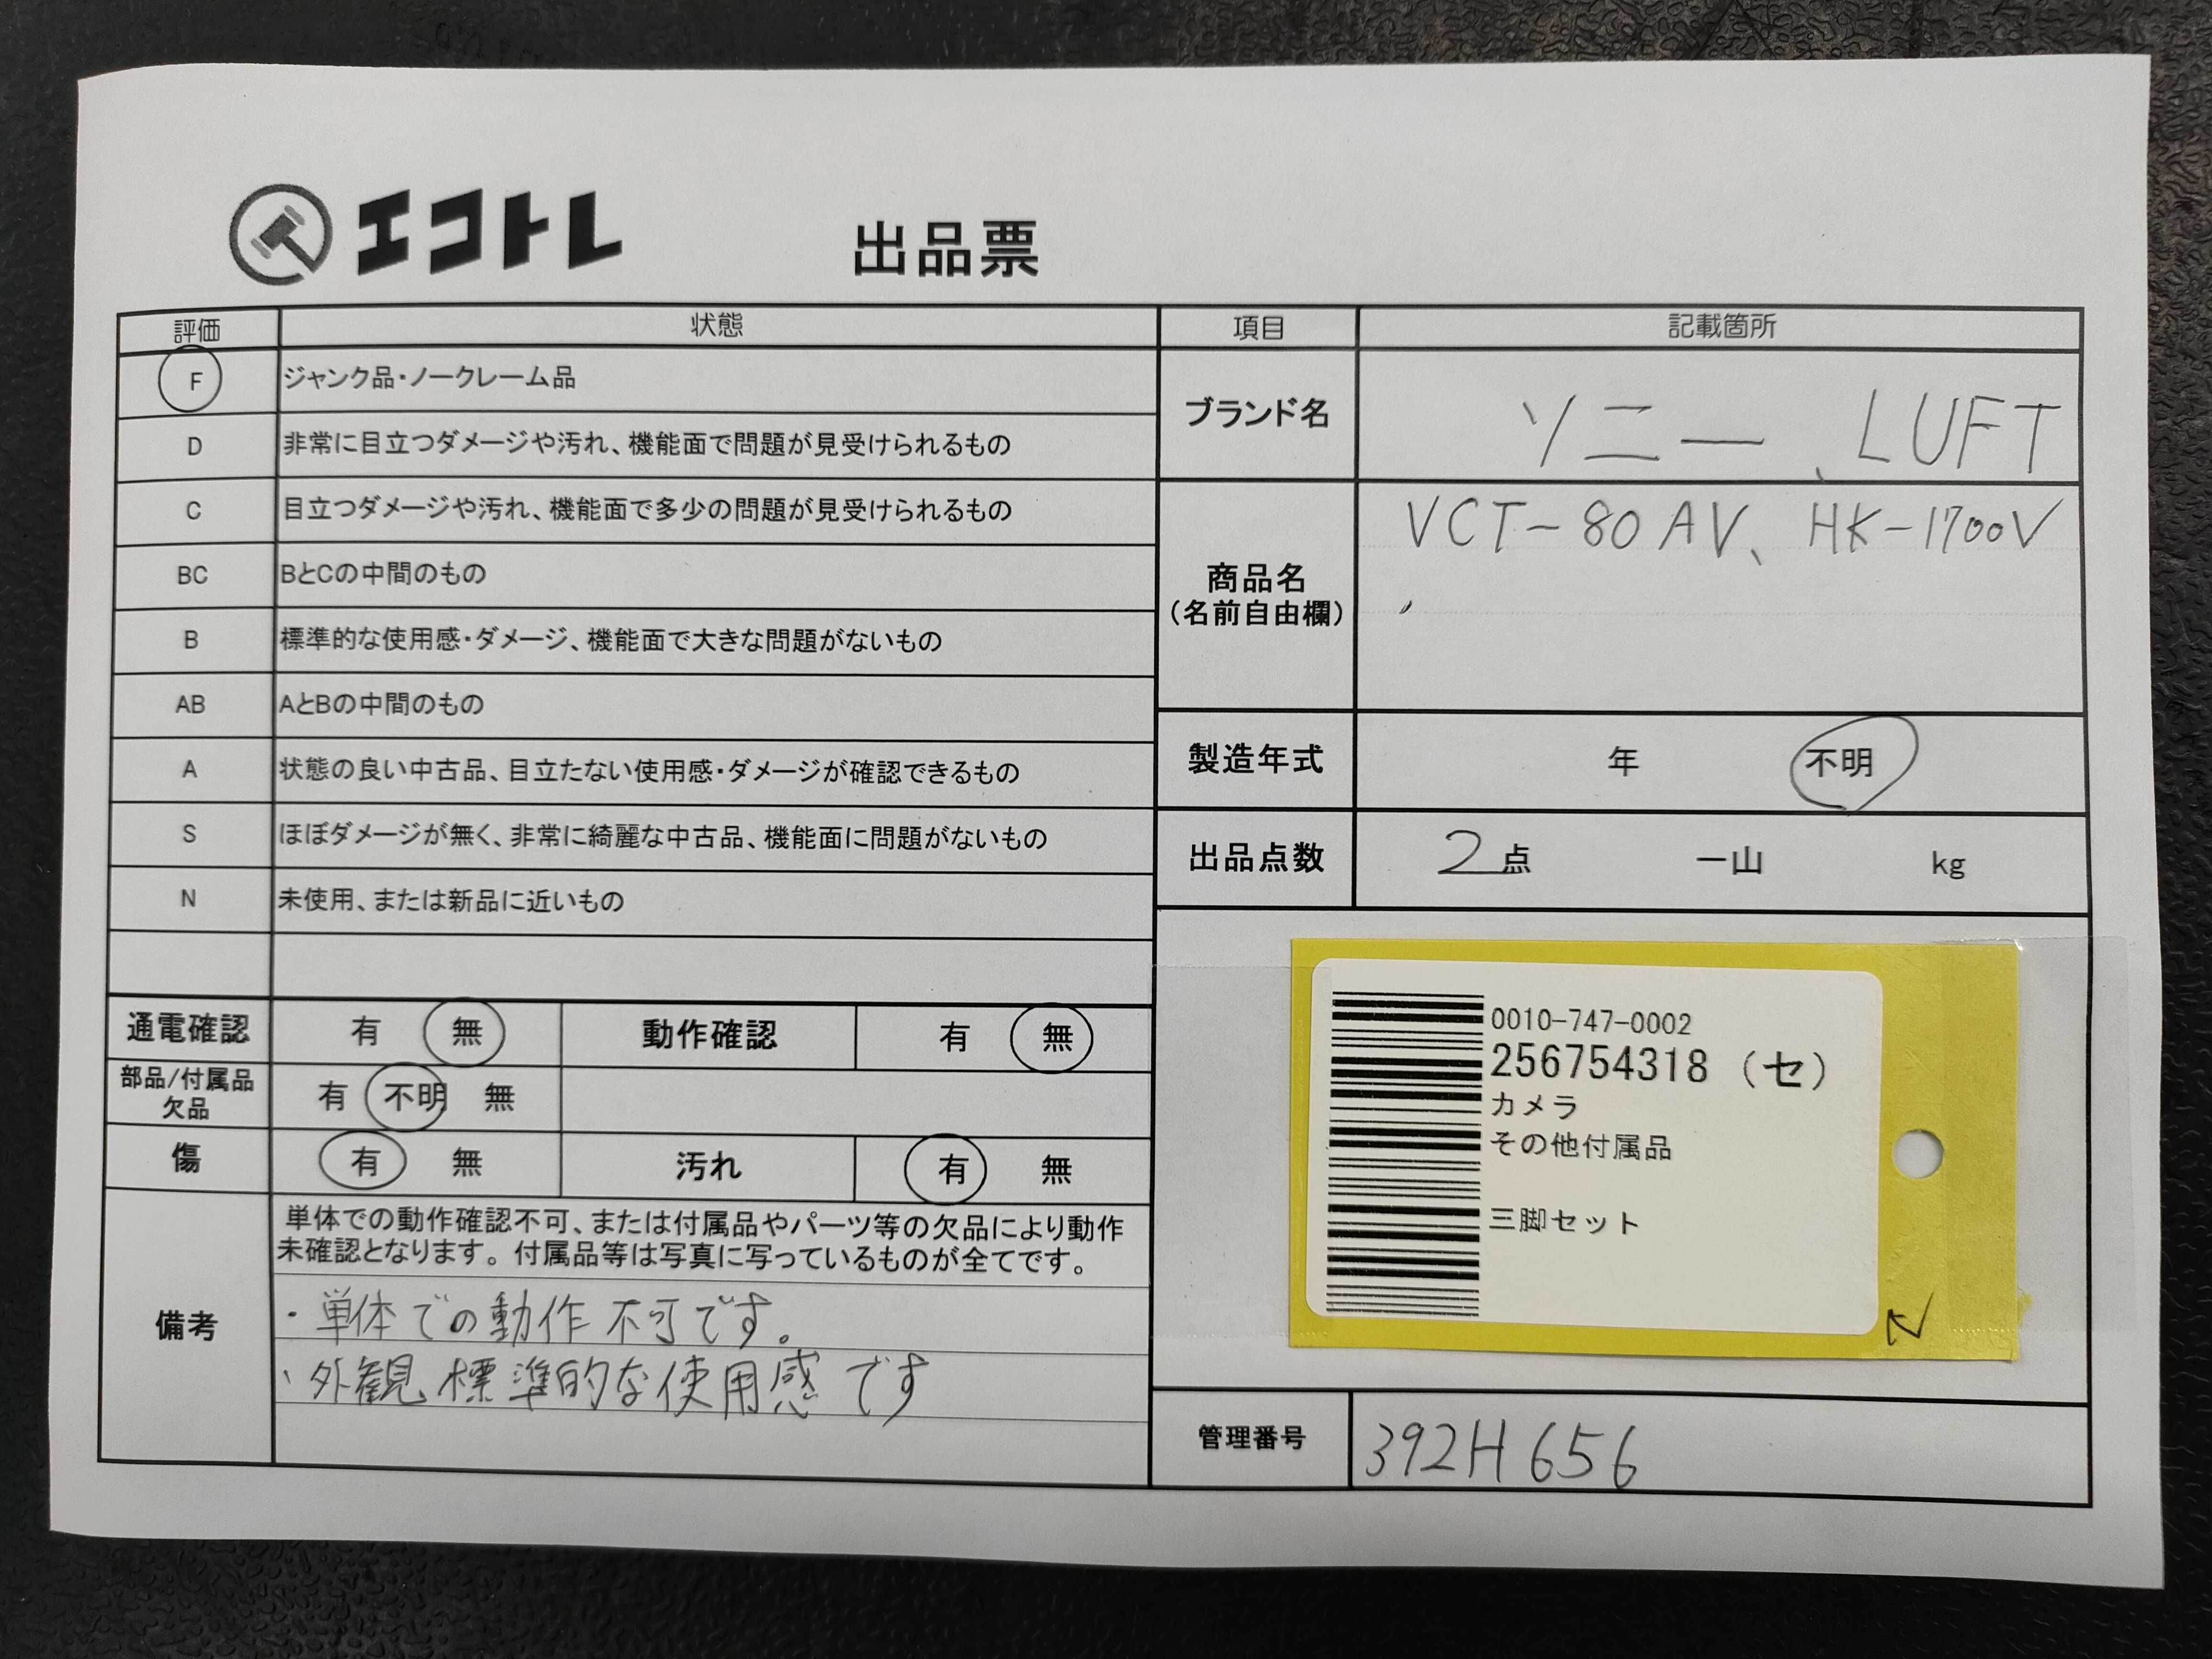 エコトレ 出品票
評価 状態
F ジャンク品・ノークレーム品
D 非常に目立つダメージや汚れ、機能面で問題が見受けられるもの
C 目立つダメージや汚れ、機能面で多少の問題が見受けられるもの
BC BとCの中間のもの
B 標準的な使用感・ダメージ、機能面で大きな問題がないもの
AB AとBの中間のもの
A 状態の良い中古品、目立たない使用感・ダメージが確認できるもの
S ほぼダメージが無く、非常に綺麗な中古品、機能面に問題がないもの
N 未使用、または新品に近いもの
通電確認 有 無 動作確認 有 無
部品/付属品
欠品 有 不明 無
傷 有 無 汚れ 有 無
備考
単体での動作確認不可、または付属品やパーツ等の欠品により動作
未確認となります。付属品等は写真に写っているものが全てです。
・単体での動作不可です。
・外観、標準的な使用感です
項目 記載箇所
ブランド名 ソニー、LUFT
商品名
(名前自由欄)
VCT-80AV、HK-1700V
製造年式 年 不明
出品点数 2点 一山 kg
0010-747-0002
256754318 (セ)
カメラ
その他付属品
三脚セット
管理番号 392H656